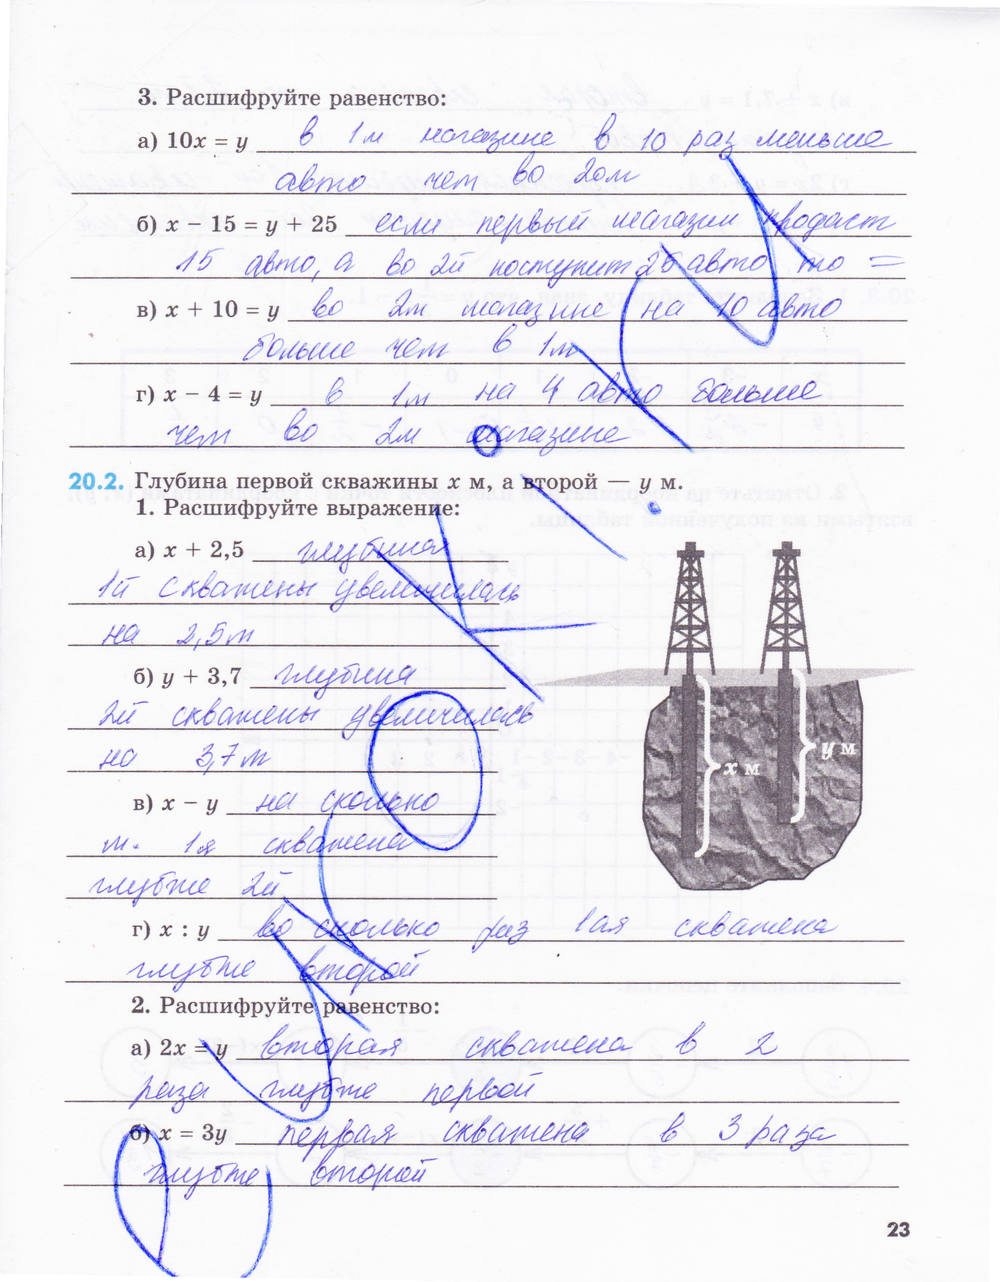 3. Расшифруйте равенство:
а) 10x = y в 1м магазине в 10 раз меньше
авто чем во 2ом
б) x − 15 = y + 25 если первый магазин продаст
15 авто, а во 2й поступит 25 авто то =
в) x + 10 = y во 2м магазине на 10 авто
больше чем в 1м
г) x − 4 = y в 1м на 4 авто больше
чем во 2м магазине
20.2. Глубина первой скважины x м, а второй — y м.
1. Расшифруйте выражение:
а) x + 2,5 глубина
1й скважены увеличилась
на 2,5м
б) y + 3,7 глубина
2й скважены увеличилась
на 3,7м
в) x − y на сколько
м. 1я скважена
глубже 2й
г) x : y во сколько раз 1ая скважена
глубже второй
x м
y м
2. Расшифруйте равенство:
а) 2x = y вторая скважена в 2
раза глубже первой
б) x = 3y первая скважена в 3 раза
глубже второй
23